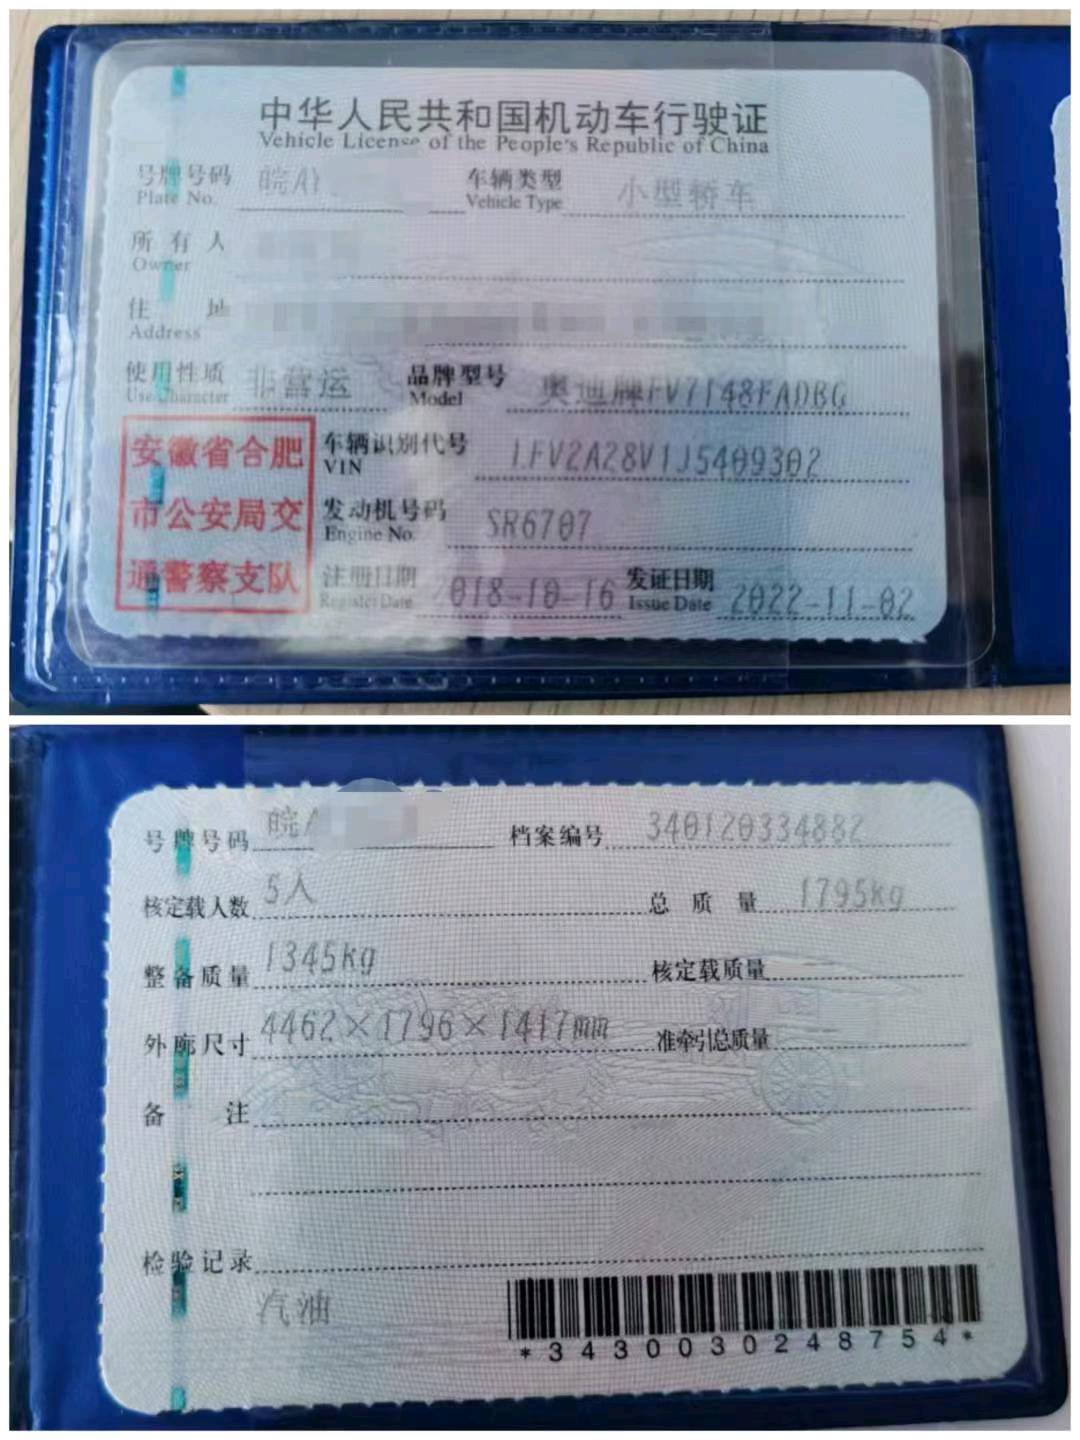 中华人民共和国机动车行驶证
Vehicle License of the People's Republic of China
号牌号码 皖A 车辆类型 小型轿车
Plate No. Vehicle Type
所有人
Owner
住址
Address
使用性质 非营运 品牌型号 奥迪牌FV7148FADBG
Use Character Model
安徽省合肥 车辆识别代号 LFV2A28V1J5409302
VIN
市公安局交 发动机号码 SR6707
Engine No.
通警察支队 注册日期 2018-10-16 发证日期 2022-11-02
Register Date Issue Date
号牌号码 皖 档案编号 340120334882
核定载人数 5人 总质量 1795kg
整备质量 1345kg 核定载质量
外廓尺寸 4462×1796×1417mm 准牵引总质量
备注
检验记录
汽油
*3430030248754*